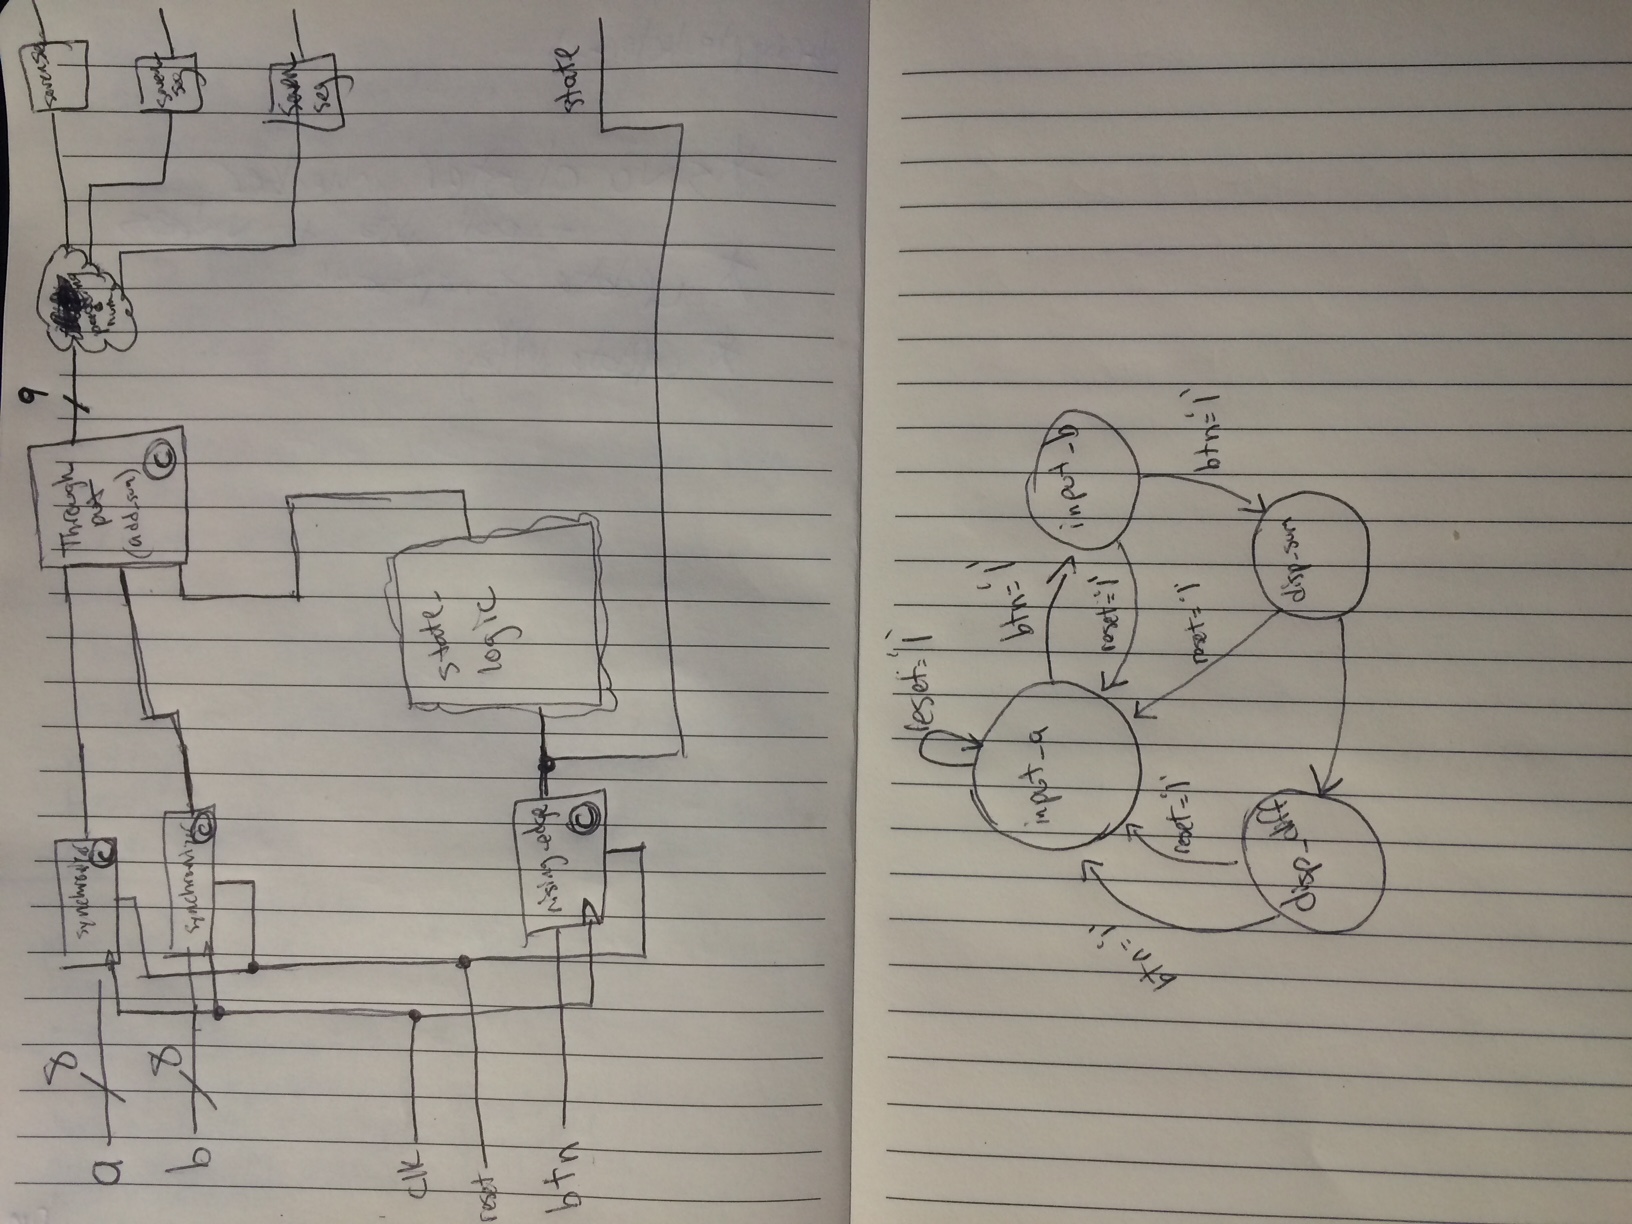 8
a
synchronizer
C
8
b
synchronizer
C
Through
put
(add_sub)
C
9
num
sevenseg
seven
seg
seven
seg
clk
reset
btn
rising-edge
C
state_
logic
state
reset='1'
input_a
btn='1'
input_b
reset='1'
btn='1'
reset='1'
reset='1'
btn='1'
disp_diff
disp_sum